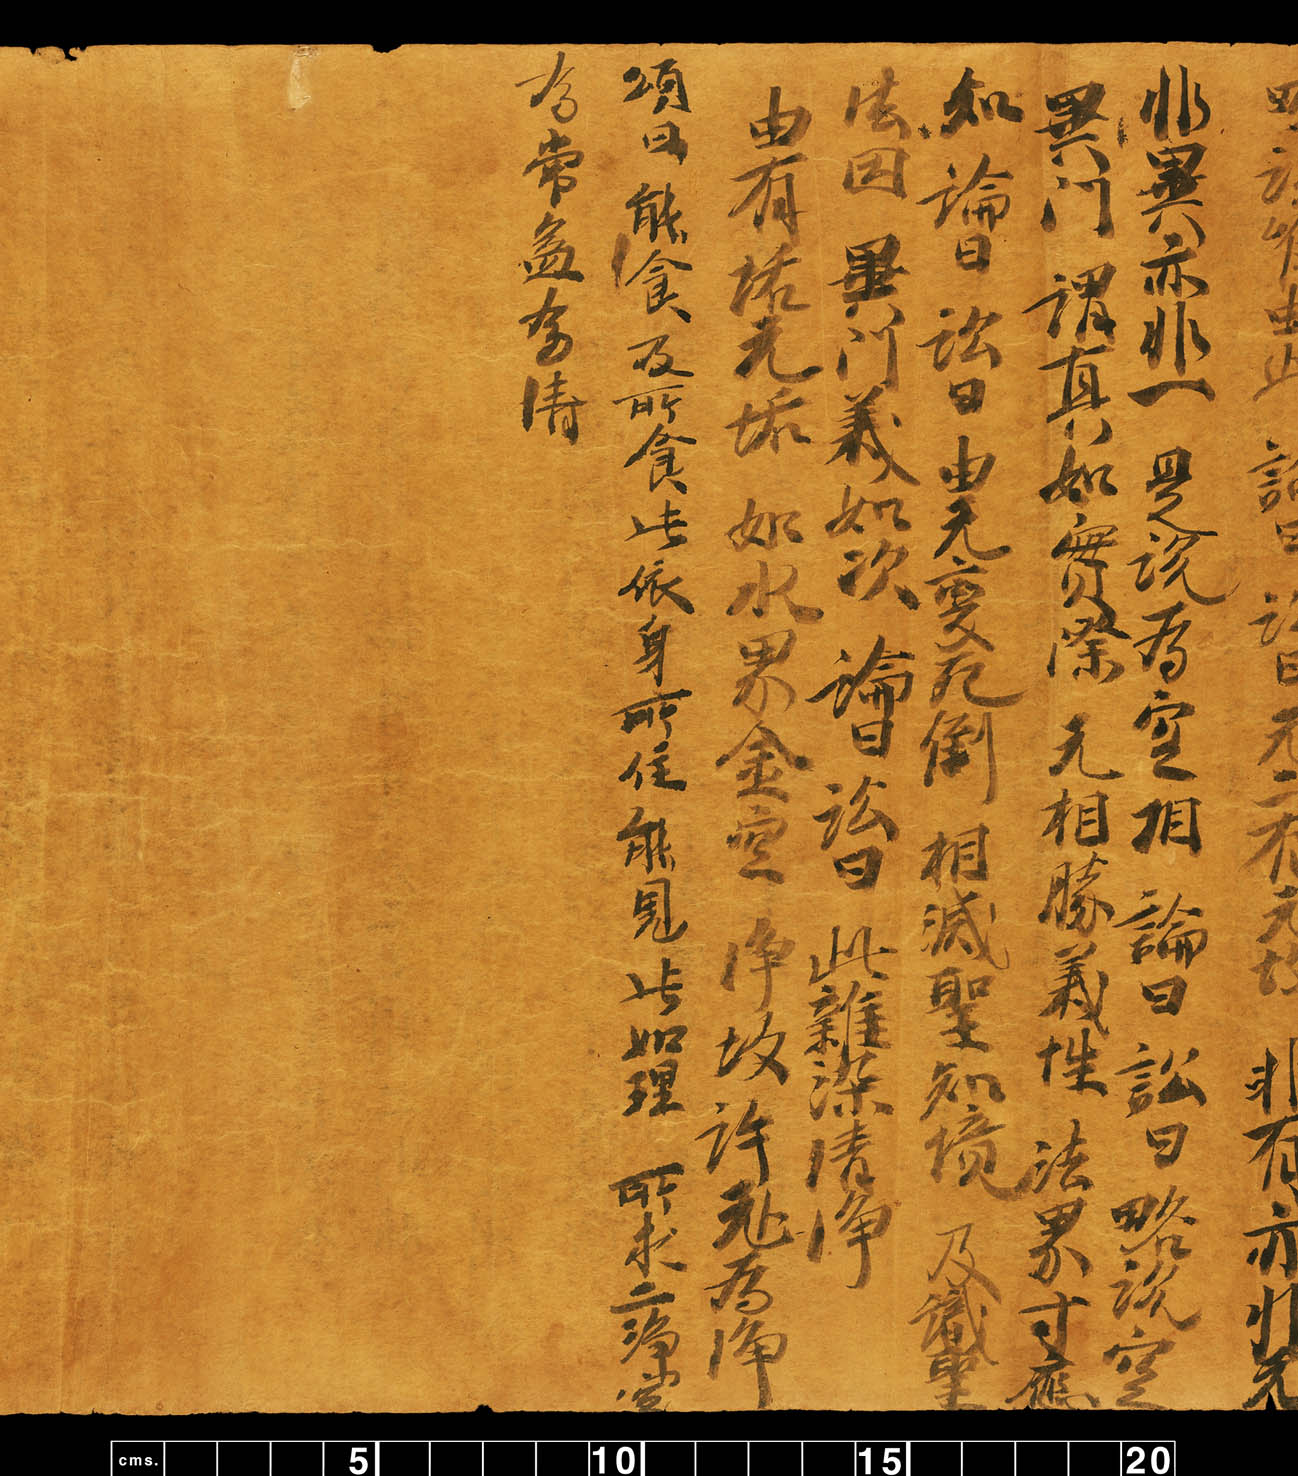 略說唯由此 論曰 訟曰 无二有无故 非有亦非无
非異亦非一 是說為空相 論曰 訟曰 略說空
異門 謂真如實際 无相勝義性 法界等應
知 論曰 訟曰 由无變无倒 相滅聖知境 及諸聖
法因 異門義如次 論曰 訟曰 此雜染清淨
由有垢无垢 如水界金空 淨故許為淨
頌曰 能食及所食 此依身所住 能見此如理 所求二淨空
為常益有情